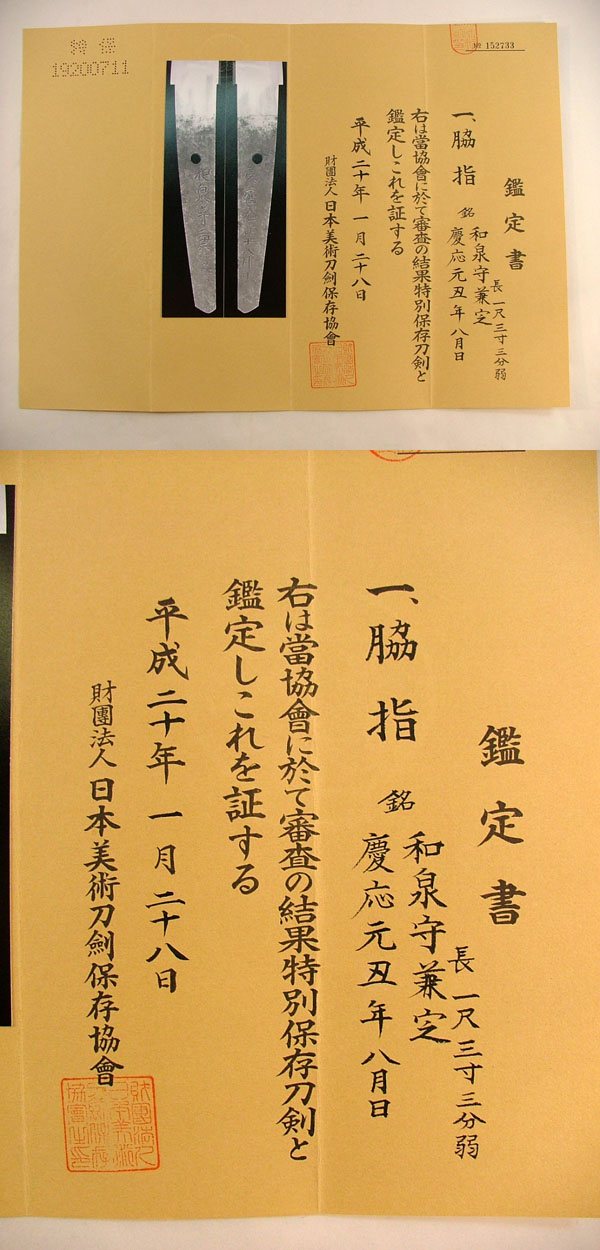 特保
19200711
№ 152733
鑑定書
一、脇指
銘
和泉守兼定
慶応元丑年八月日
長一尺三寸三分弱
右は當協會に於て審査の結果特別保存刀剣と
鑑定しこれを証する
平成二十年一月二十八日
財團法人日本美術刀劍保存協會
鑑定書
長一尺三寸三分弱
一、脇指
銘
和泉守兼定
慶応元丑年八月日
右は當協會に於て審査の結果特別保存刀剣と
鑑定しこれを証する
平成二十年一月二十八日
財團法人日本美術刀劍保存協會